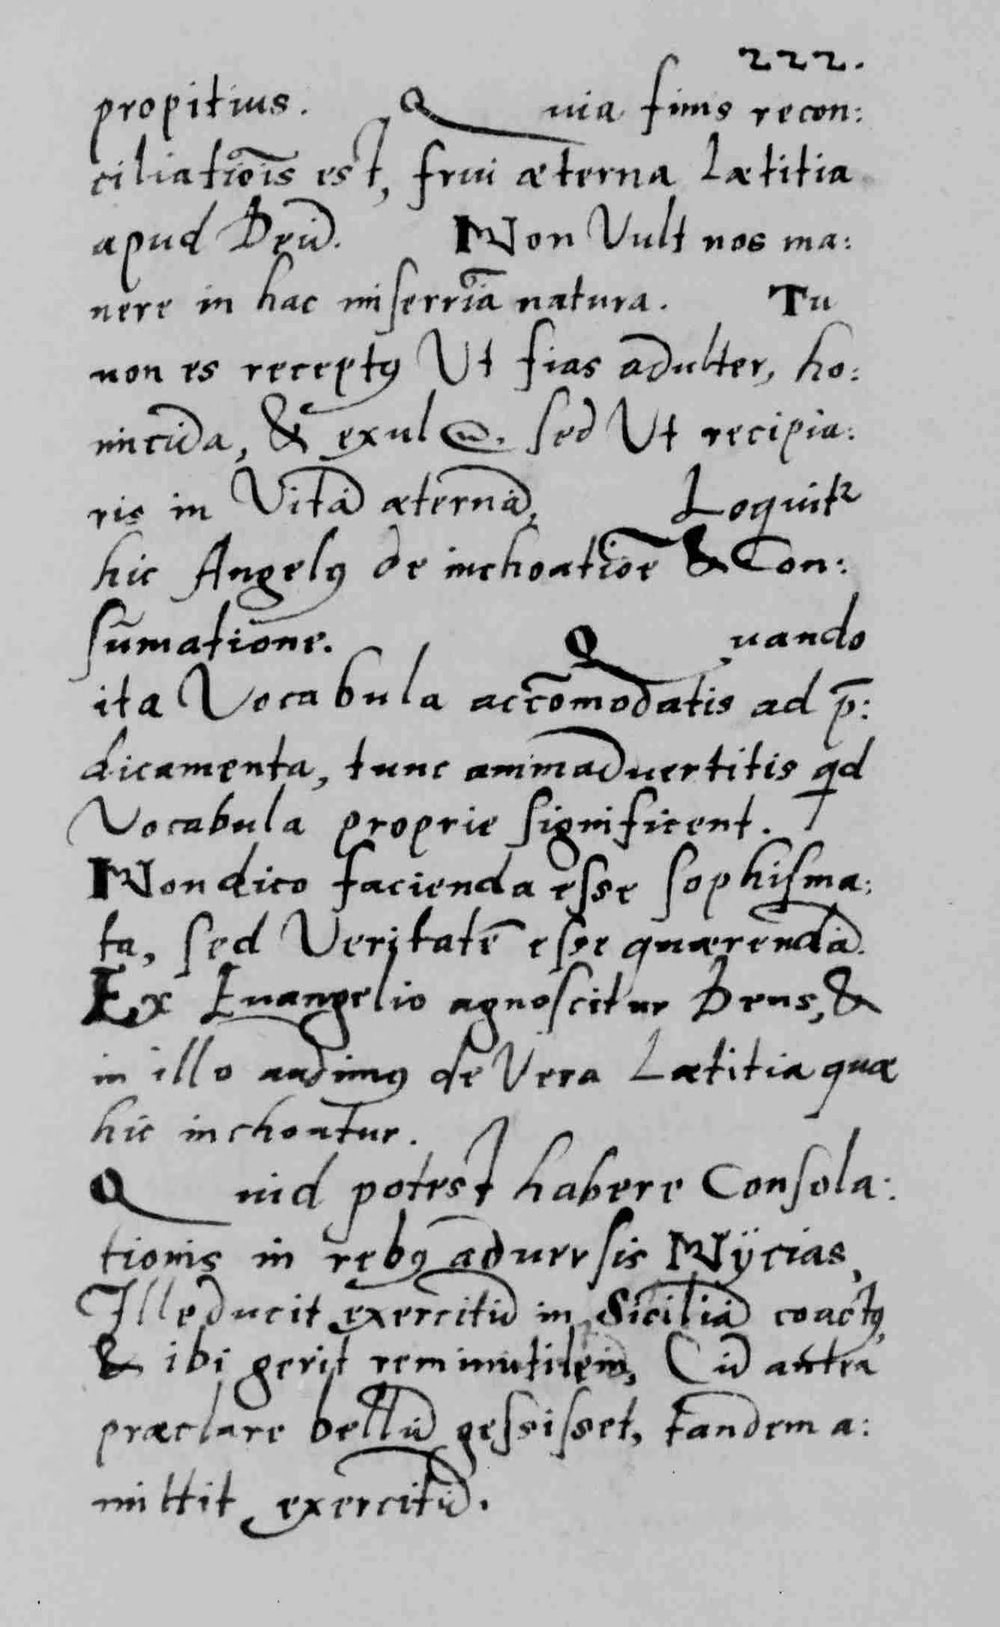 222.
propitius. Quia finis recon:
ciliatiois est, frui æterna Lætitia
apud Deū. Non Vult nos ma:
nere in hac miserria natura. Tu
non es receptꝰ Ut fias adulter, ho:
micida, & exul @. sed Ut recipia:
ris in Vitā æternā, Loquitr
hic Angelꝰ de inchoatiōe & Con:
sūmatione. Quando
ita Vocabula accōmodatis ad p̄:
dicamenta, tunc animaduertitis qd
Vocabula proprie significent.
Non dico facienda esse sophisma:
ta, sed Veritatē esse quærendā.
Ex Euangelio agnoscitur Deus, &
in illo audimꝰ de Vera Lætitia quæ
hic inchoatur.
Quid potest habere Consola:
tionis in rebꝰ aduersis Nÿcias,
Ille ducit exercitū in Siciliā coactꝰ,
& ibi gerit rem inutilem, Cū antea
præclare bellū gessisset, tandem a:
mittit exercitū.